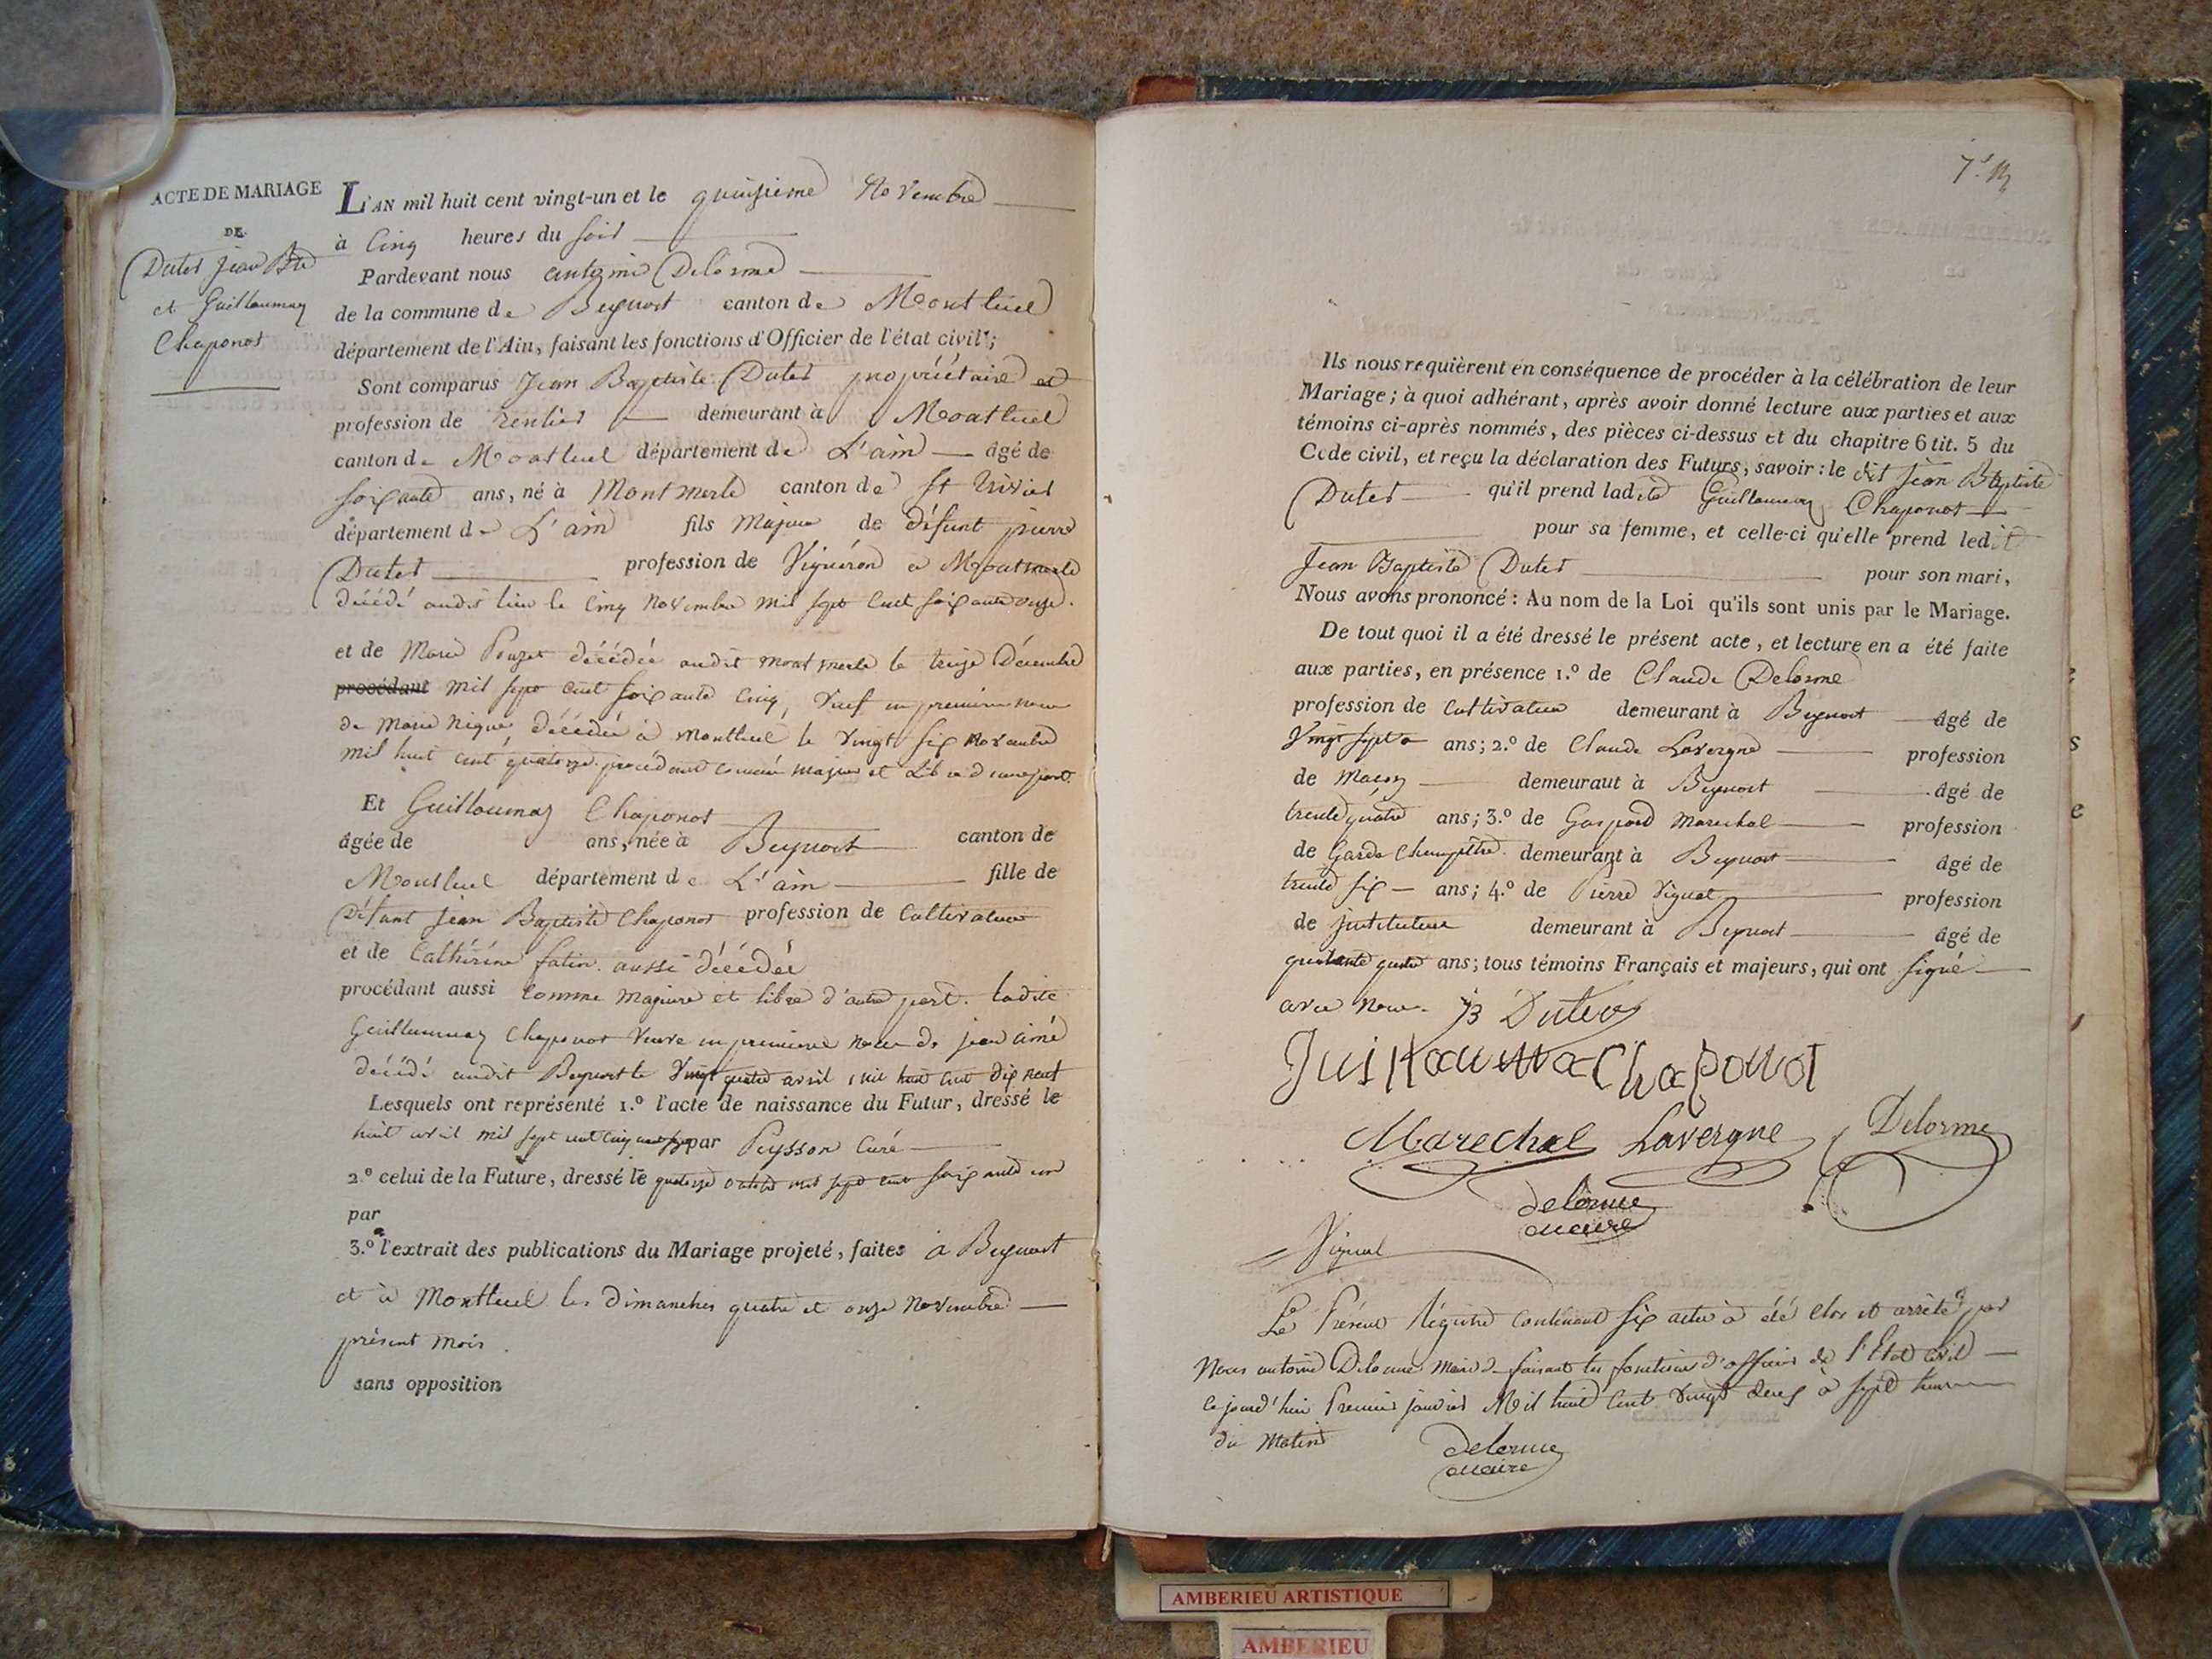 ACTE DE MARIAGE
DE
Duter Jean Bte
et Guillaumaz
Chaponot
L'AN mil huit cent vingt-un et le quinzieme Novembre
à Cinq heures du soir
Pardevant nous antoine Delorme
de la commune de Beynost canton de Montluel
département de l'Ain, faisant les fonctions d'Officier de l'état civil;
Sont comparus Jean Baptiste Duter propriétaire et
profession de rentier demeurant à Montluel
canton de Montluel département de L'ain âgé de
soixante ans, né à Montmerle canton de St trivier
département de L'ain fils Majeur de défunt pierre
Duter profession de Vigneron a Montmerle
décédé audit lieu le Cinq Novembre Mil sept Cent soixante onze.
et de Marie Pouzet décédée audit montmerle le treize Décembre
procédant mil sept cent soixante cinq, Veuf en premiere noce
de Marie décédée à Montluel le Vingt six Novembre
mil huit cent quatorze procédant comme majeur et Libre d'une part.
Et Guillaumaz Chaponot
âgée de ans, née à Beynost canton de
Montluel département de L'ain fille de
Défunt Jean Baptiste Chaponot profession de Cultivateur
et de Cathérine fatin. aussi décédée
procédant aussi comme majeure et libre d'autre part. Ladite
Guillaumaz Chaponot Veuve en premiere noce de jean aimé
décédé audit Beynost le Vingt quatre avril mil huit cent dix neuf
Lesquels ont représenté 1.º l'acte de naissance du Futur, dressé le
huit avril mil sept cent par Peysson Curé
2.º celui de la Future, dressé le quatorze octobre mil sept cent soixante un
par
3.º l'extrait des publications du Mariage projeté, faites à Beynost
et à Montluel les Dimanches quatre et onze Novembre
présent mois.
sans opposition
Ils nous requièrent en conséquence de procéder à la célébration de leur
Mariage; à quoi adhérant, après avoir donné lecture aux parties et aux
témoins ci-après nommés, des pièces ci-dessus et du chapitre 6 tit. 5 du
Code civil, et reçu la déclaration des Futurs, savoir: le dit Jean Baptiste
Duter qu'il prend ladite Guillaumaz Chaponot
pour sa femme, et celle-ci qu'elle prend ledit
Jean Baptiste Duter pour son mari,
Nous avons prononcé: Au nom de la Loi qu'ils sont unis par le Mariage.
De tout quoi il a été dressé le présent acte, et lecture en a été faite
aux parties, en présence 1.º de Claude Delorme
profession de Cultivateur demeurant à Beynost âgé de
Vingt sept ans; 2.º de Claude Lavergne profession
de Maçon demeuraut à Beynost âgé de
trente quatre ans; 3.º de Gaspard Marechal profession
de Garde Champêtre demeurant à Beynost âgé de
trente six ans; 4.º de Pierre Vignat profession
de jnstituteur demeurant à Beynost âgé de
quarante quatre ans; tous témoins Français et majeurs, qui ont signé
avec Nous. JB Duter
Guillauma Chaponot
Marechal Lavergne Delorme
delorme
maire
Vignat
Le Présent Régistre Contenant six actes à été clos et arrêté par
Nous antoine Delorme Maire faisant les fonctions d'officier de l'Etat Civil
ce jourd'hui Premier janvier Mil huit Cent Vingt deux à sept heures
du Matin
delorme
maire
AMBERIEU ARTISTIQUE
AMBERIEU